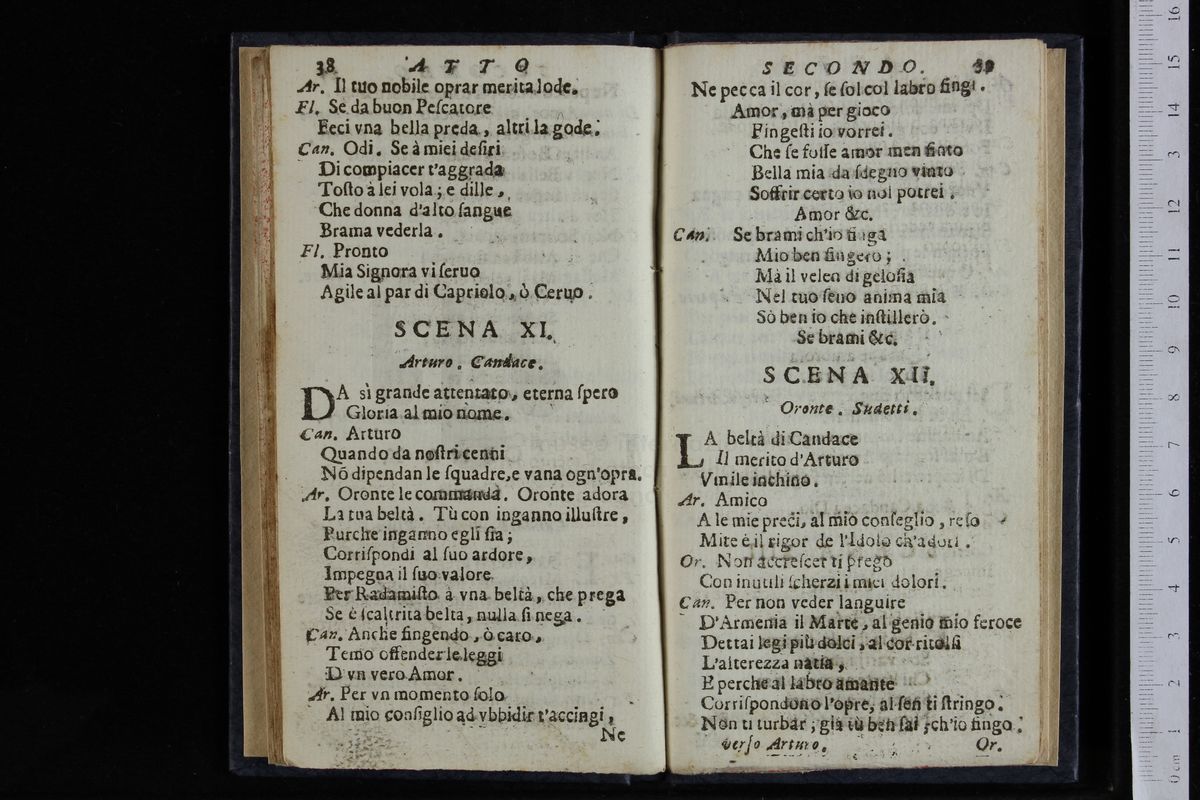 38 ATTO
Ar. Il tuo nobile oprar merita lode.
Fl. Se da buon Peſcatore
Feci vna bella preda, altri la gode.
Can. Odi. Se à miei deſiri
Di compiacer t'aggrada
Toſto à lei vola; e dille,
Che donna d'alto ſangue
Brama vederla.
Fl. Pronto
Mia Signora vi ſeruo
Agile al par di Capriolo, ò Ceruo.
SCENA XI.
Arturo. Candace.
DA sì grande attentato, eterna ſpero
Gloria al mio nome.
Can. Arturo
Quando da noſtri cenni
Nõ dipendan le ſquadre, e vana ogn'opra.
Ar. Oronte le commanda. Oronte adora
La tua beltà. Tù con inganno illuſtre,
Purche inganno egli ſia;
Corriſpondi al ſuo ardore,
Impegna il ſuo valore
Per Radamiſto à vna beltà, che prega
Se è ſcaltrita belta, nulla ſi nega.
Can. Anche fingendo, ò caro,
Temo offender le leggi
D'vn vero Amor.
Ar. Per vn momento ſolo
Al mio conſiglio ad vbbidir t'accingi,
Ne
SECONDO. 39
Ne pecca il cor, ſe ſol col labro fingi.
Amor, mà per gioco
Fingeſti io vorrei.
Che ſe foſſe amor men finto
Bella mia da ſdegno vinto
Soffrir certo io nol potrei.
Amor &c.
Can. Se brami ch'io finga
Mio ben fingerò;
Mà il velen di geloſia
Nel tuo ſeno anima mia
Sò ben io che inſtillerò.
Se brami &c.
SCENA XII.
Oronte. Sudetti.
LA beltà di Candace
Il merito d'Arturo
Vmile inchino.
Ar. Amico
A le mie preci, al mio conſeglio, reſo
Mite è il rigor de l'Idolo ch'adori.
Or. Non accreſcer ti prego
Con inutili ſcherzi i miei dolori.
Can. Per non veder languire
D'Armenia il Marte, al genio mio feroce
Dettai legi più dolci, al cor ritolſi
L'alterezza natia,
E perche al labro amante
Corriſpondono l'opre, al ſen ti ſtringo.
Non ti turbar; già tù ben ſai, ch'io fingo.
verſo Arturo. Or.
0 cm 1 2 3 4 5 6 7 8 9 10 11 12 13 14 15 16